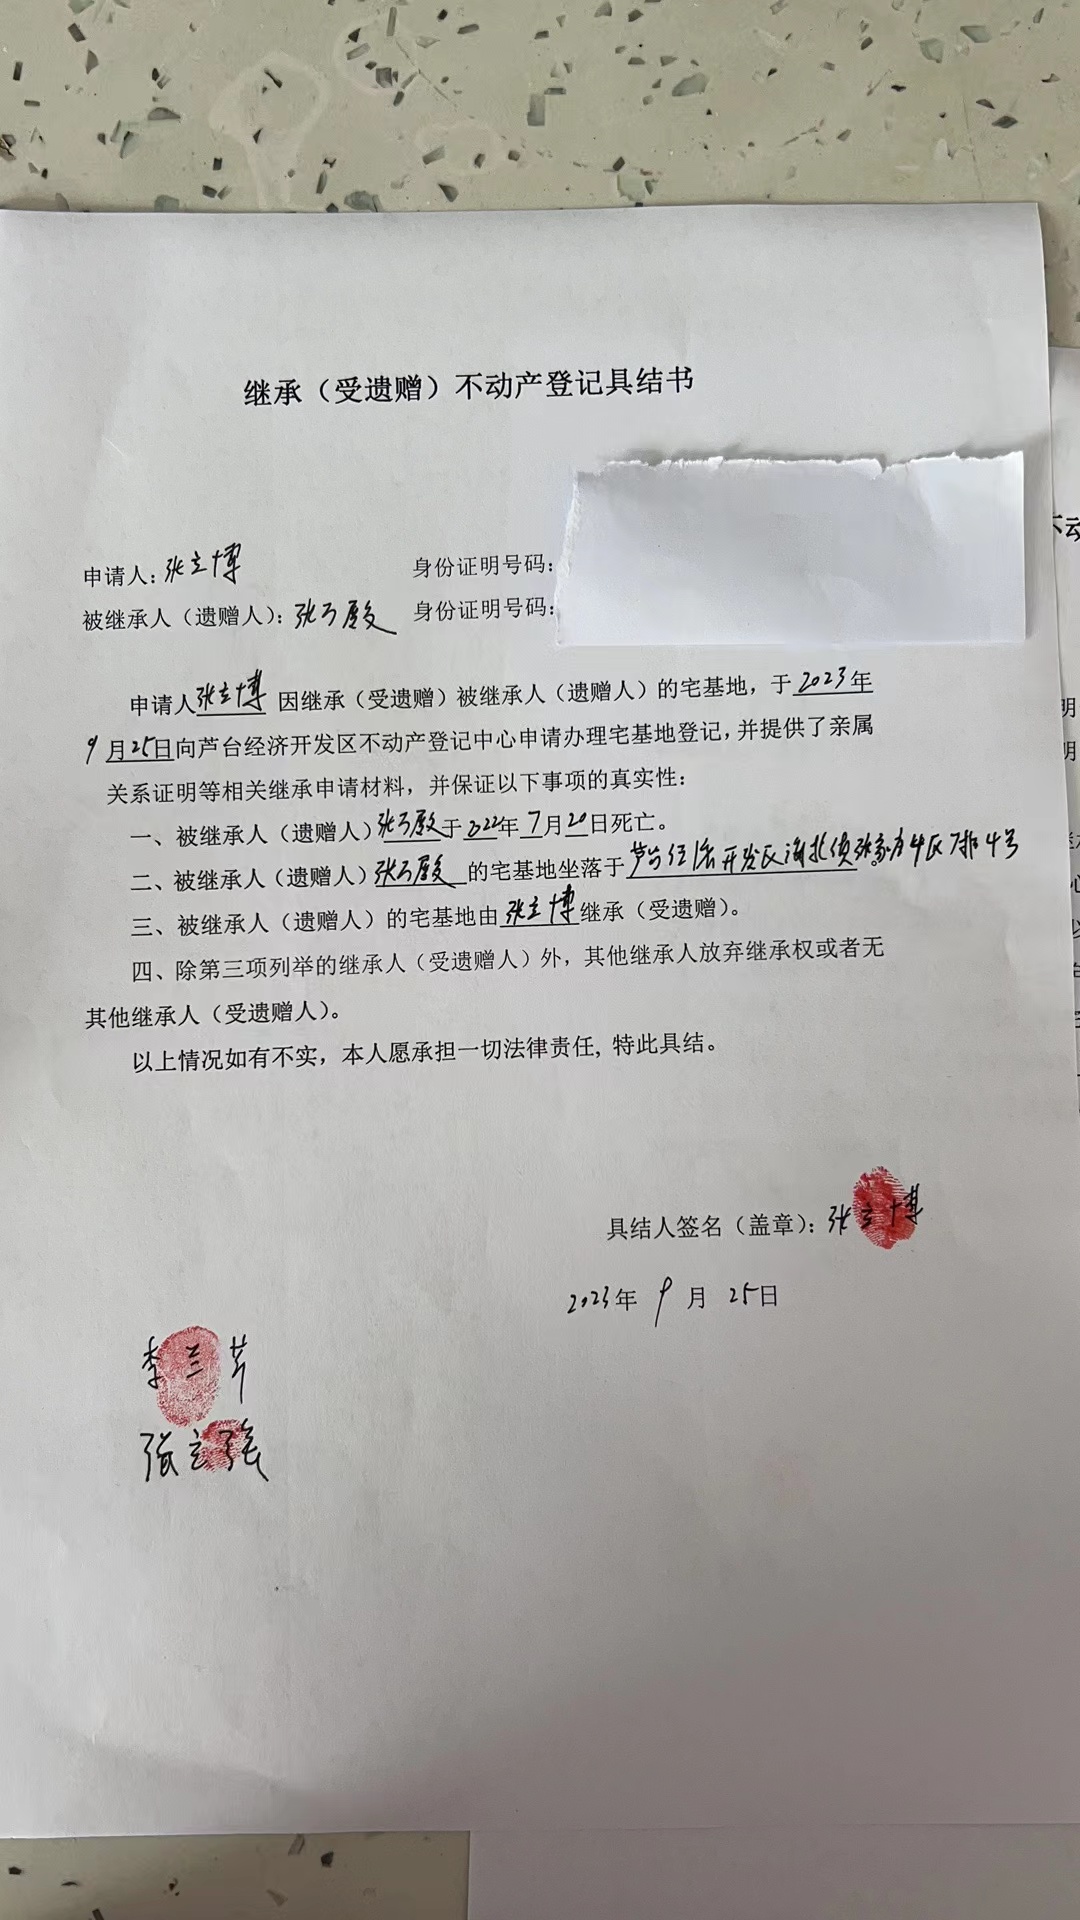 继承（受遗赠）不动产登记具结书
申请人：张立博 身份证明号码：
被继承人（遗赠人）：张万殿 身份证明号码：
申请人张立博因继承（受遗赠）被继承人（遗赠人）的宅基地，于2023年
9月25日向芦台经济开发区不动产登记中心申请办理宅基地登记，并提供了亲属
关系证明等相关继承申请材料，并保证以下事项的真实性：
一、被继承人（遗赠人）张万殿于2022年7月20日死亡。
二、被继承人（遗赠人）张万殿的宅基地坐落于芦台经济开发区海北镇张家房4区7排4号
三、被继承人（遗赠人）的宅基地由张立博继承（受遗赠）。
四、除第三项列举的继承人（受遗赠人）外，其他继承人放弃继承权或者无
其他继承人（受遗赠人）。
以上情况如有不实，本人愿承担一切法律责任，特此具结。
具结人签名（盖章）：张立博
2023年9月25日
李兰芹
张立强
不动
明
明